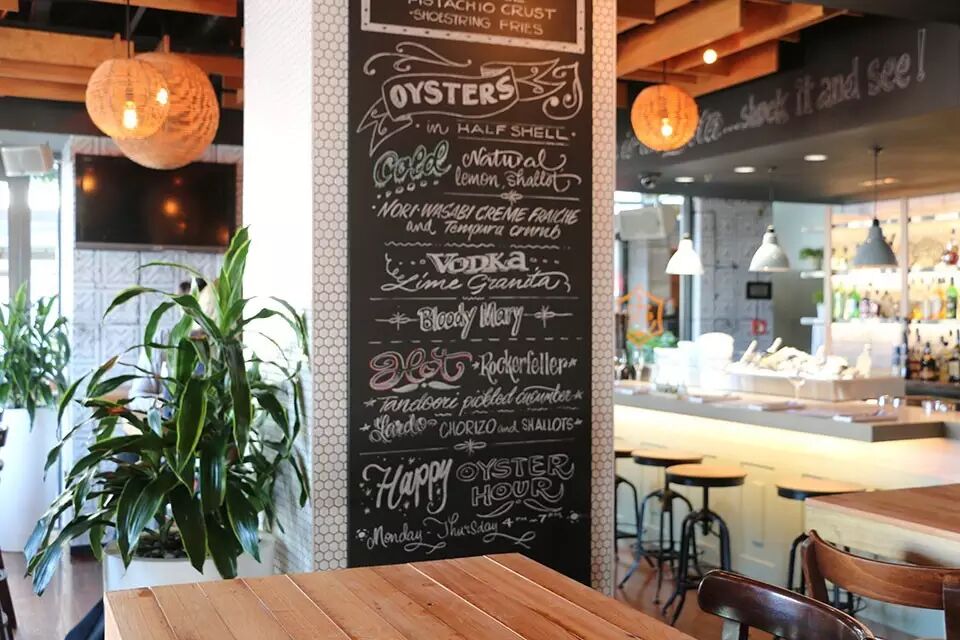 PISTACHIO CRUST
·SHOESTRING FRIES
OYSTERS
in HALF SHELL·
Cold Natural
lemon, shallot
·NORI-WASABI CREME FRAICHE
and Tempura crumb
VODKA
Lime Granita
Bloody Mary
Hot ·Rockerfeller·
Tandoori pickled cucumber
Lardo CHORIZO and SHALLOTS·
Happy OYSTER
HOUR
·Monday-Thursday 4PM-7PM·
shuck it and see!